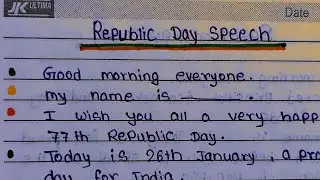 JK ULTIMA
Date
Republic Day Speech
Good morning everyone.
my name is ______.
I wish you all a very happ
77th Republic Day.
Today is 26th January, a pro
day for India.